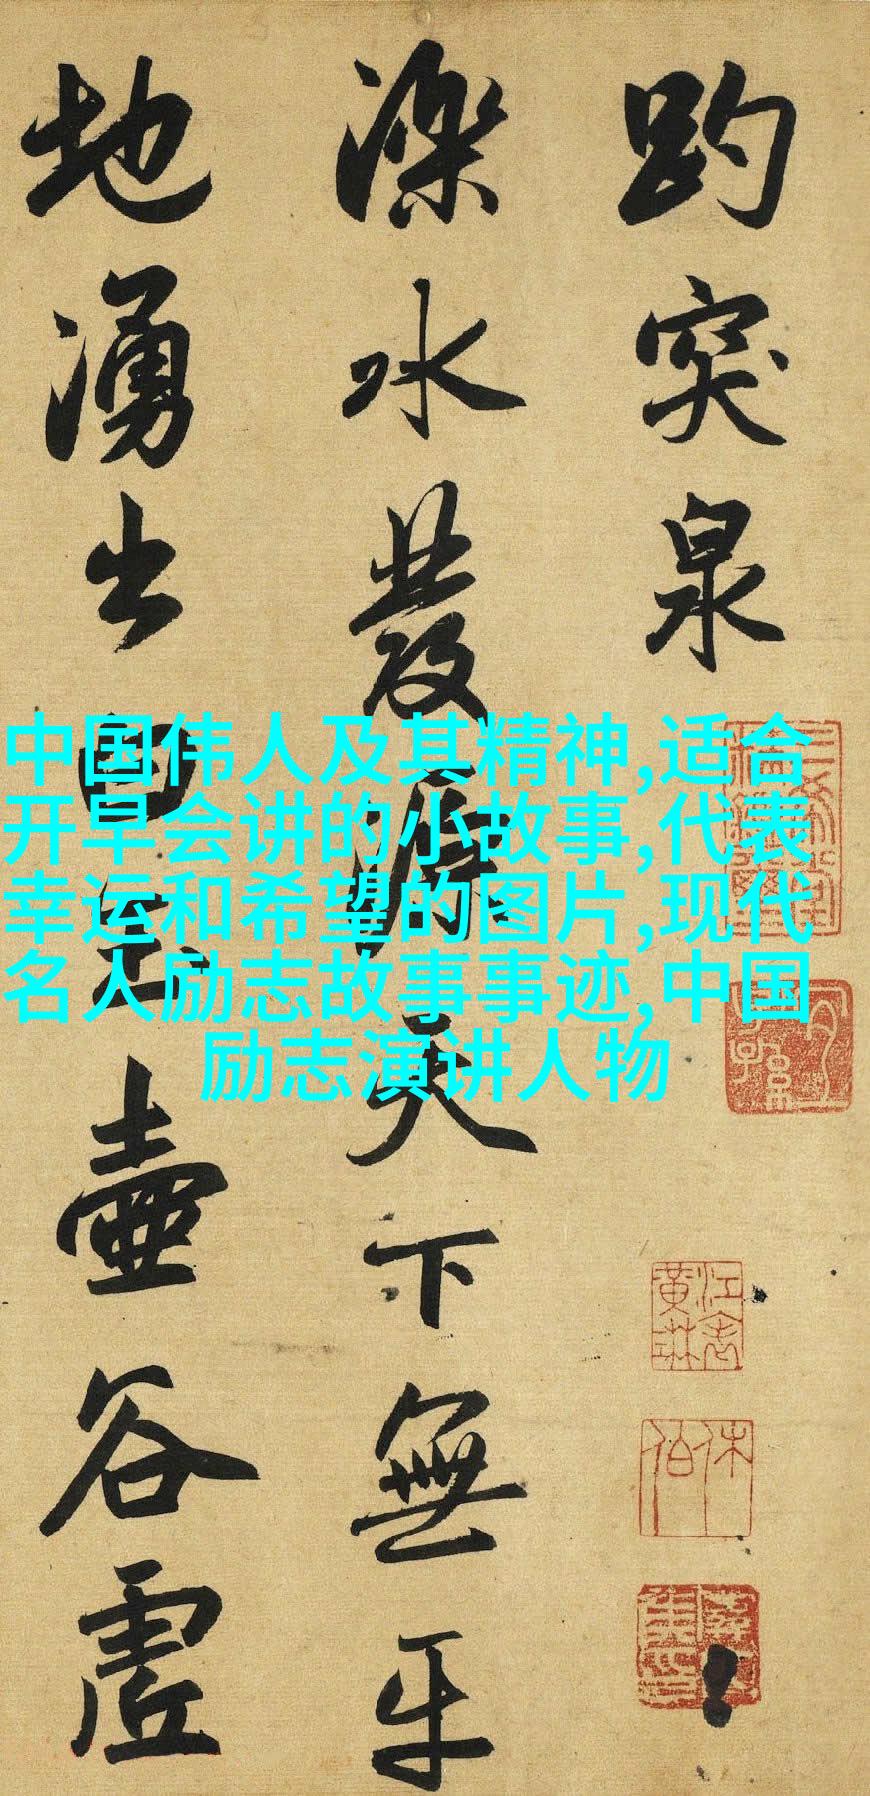 趵突泉
濼水發源天下無平
地湧出白玉壺谷虛
中国伟人及其精神,适合
开早会讲的小故事,代表
幸运和希望的图片,现代
名人励志故事事迹,中国
励志演讲人物
江表黃琳
休伯